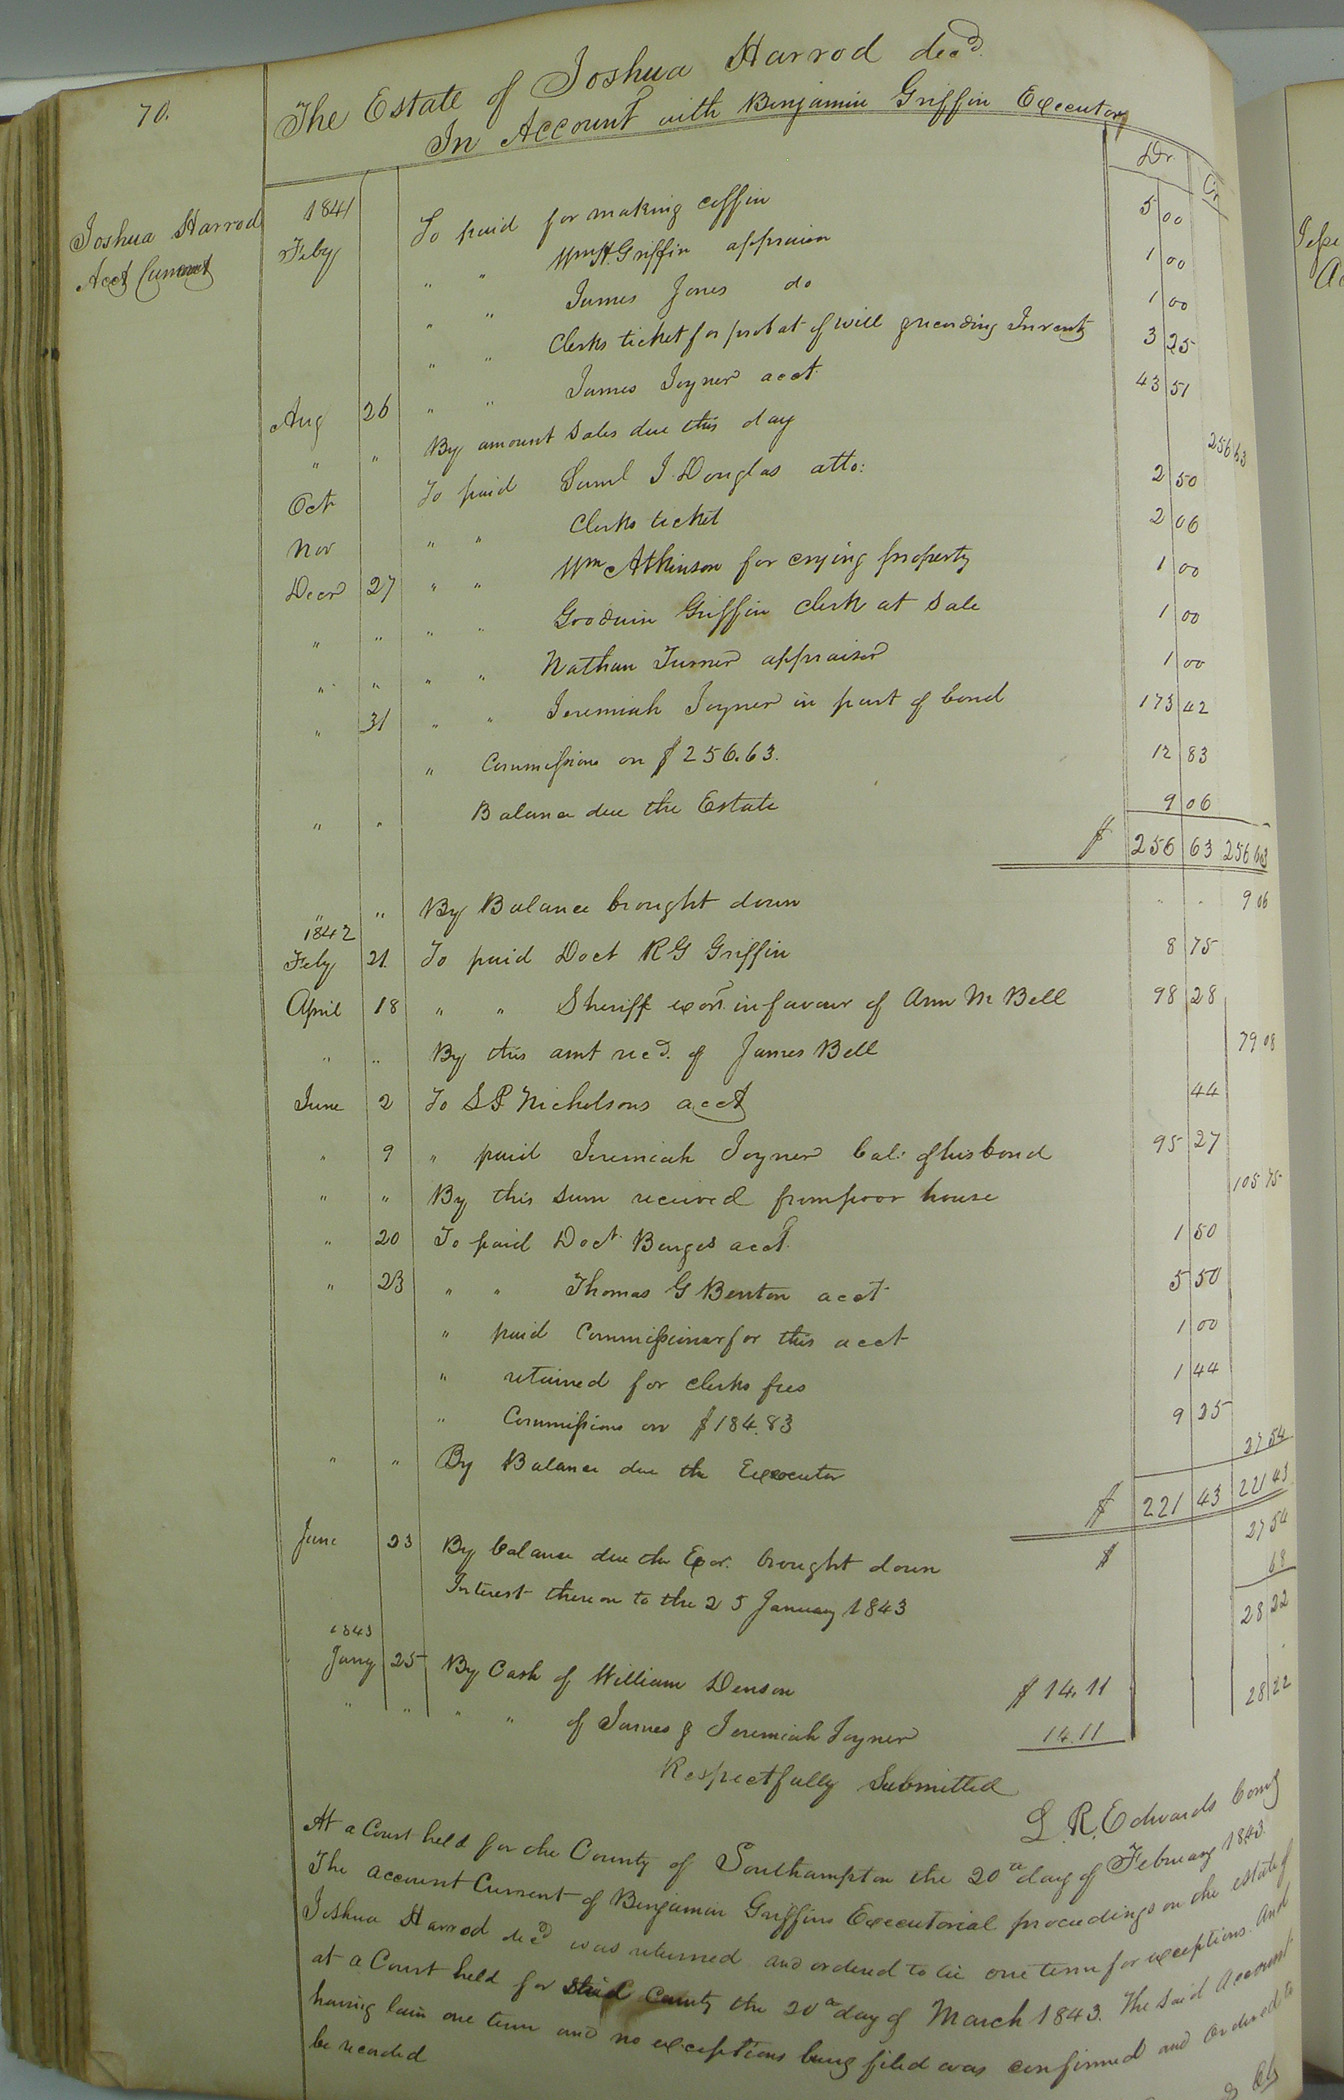 70.
The Estate of Joshua Harrod decd.
In Account with Benjamin Griffin Executor
Dr. Cr.
Joshua Harrod
Acct Current
1841
Feby To paid for making coffin 5 00
" " Wm H. Griffin appraiser 1 00
" " James Jones do 1 00
" " Clerks ticket for probat of will recording Inventy 3 25
Aug 26 " " James Joyner acct. 43 51
" " By amount Sales due this day 256 63
Oct To paid Saml J. Douglas atto: 2 50
Nov " " Clerks ticket 2 06
Decr 27 " " Wm Atkinson for crying property 1 00
" " " " Goodwin Griffin clerk at Sale 1 00
" " " " Nathan Turner appraiser 1 00
" 31 " " Jeremiah Joyner in part of bond 173 42
" Commissions on $256.63. 12 83
" " Balance due the Estate 9 06
$ 256 63 256 63
" " By Balance brought down " " 9 06
1842
Feby 21. To paid Doct R G Griffin 8 75
April 18 " " Sheriff exon. in favour of Ann M Bell 98 28
" " By this amt recd. of James Bell 79 08
June 2 To S P Nicholsons acct 44
" 9 " paid Jeremiah Joyner bal: of his bond 95 27
" " By this sum received from poor house 105 75
" 20 To paid Doct. Burges acct. 1 50
" 23 " " Thomas G Benton acct 5 50
" paid Commissioner for this acct 1 00
" retained for clerks fees 1 44
" Commissions on $184.83 9 25
" " By Balance due the Executor 27 54
$ 221 43 221 43
June 23 By balance due the Exor. brought down $ 27 54
Interest thereon to the 25 January 1843 68
28 22
1843
Jany 25 By Cash of William Denson $14.11
" " " " of James & Jeremiah Joyner 14.11 28 22
Respectfully Submitted
L. R. Edwards Comr
At a Court held for the County of Southampton the 20th day of February 1843.
The account Current of Benjamin Griffins Executorial proceedings on the estate of
Joshua Harrod decd was returned and ordered to lie one term for exceptions. And
at a Court held for said County the 20th day of March 1843. The said Account
having lain one term and no exceptions being filed was confirmed and ordered to
be recorded